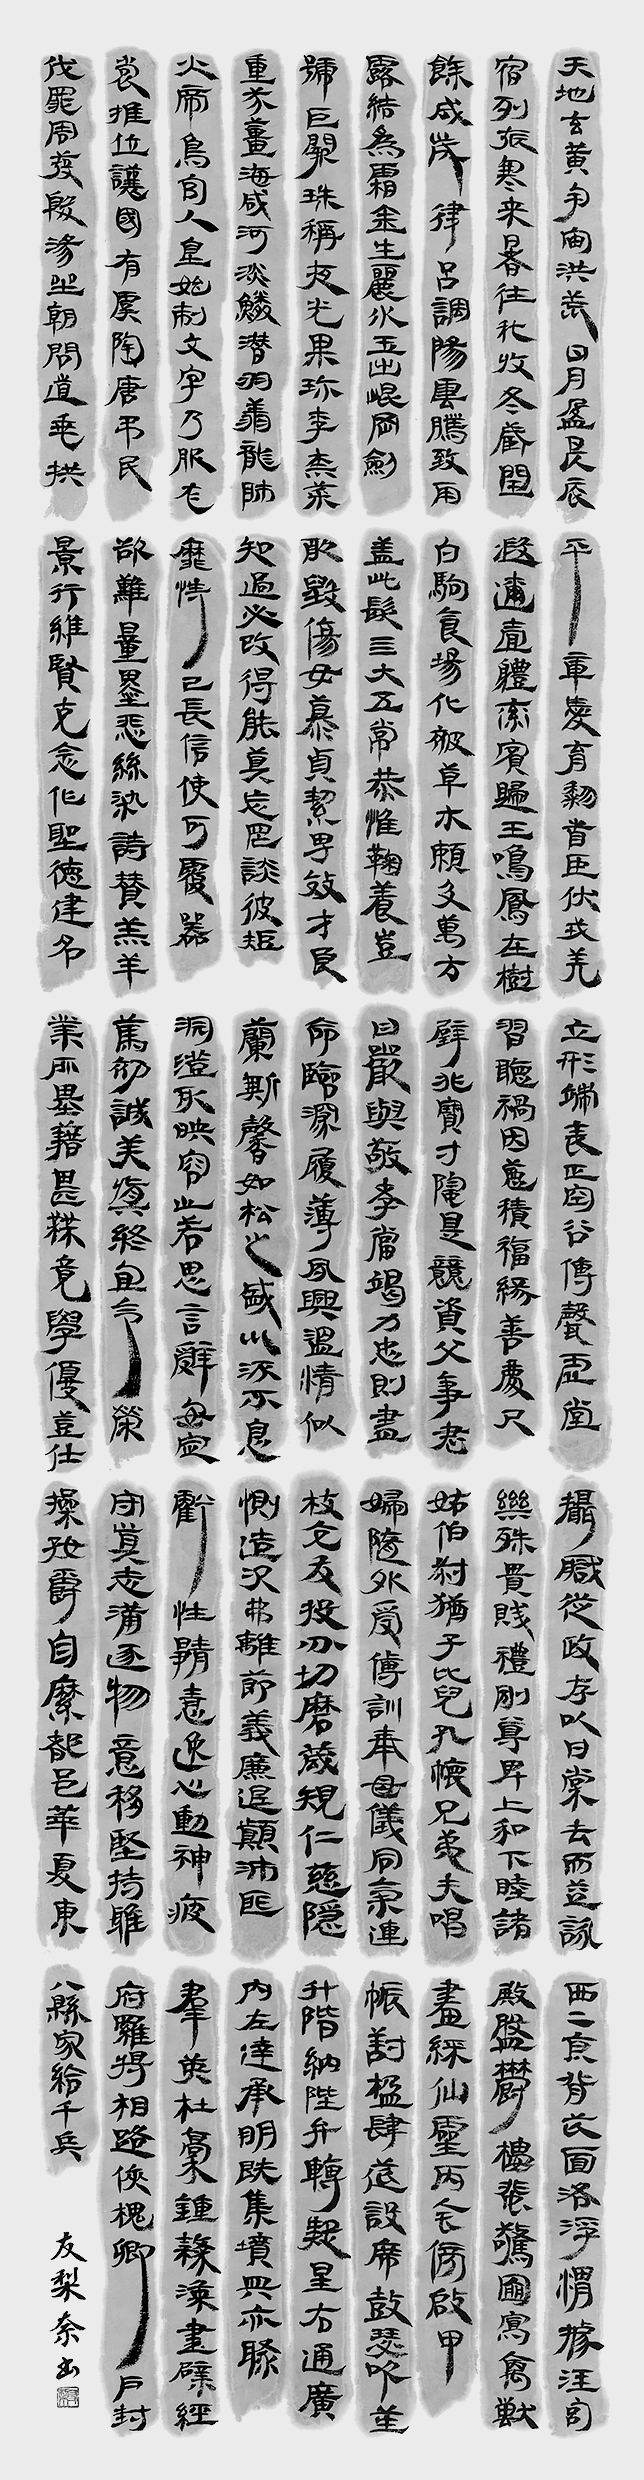 天地玄黄宇宙洪荒日月盈昃辰
宿列張寒来暑往秋收冬蔵閏
餘成歳律呂調陽雲騰致雨
露結為霜金生麗水玉出崐岡劍
號巨闕珠稱夜光果珍李柰菜
重芥薑海咸河淡鱗潜羽翔龍師
火帝鳥官人皇始制文字乃服衣
裳推位讓國有虞陶唐弔民
伐罪周發殷湯坐朝問道垂拱
平章愛育黎首臣伏戎羌
遐邇壹體率賓歸王鳴鳳在樹
白駒食場化被草木頼及萬方
盖此髮四大五常恭惟鞠養豈
敢毀傷女慕貞絜男效才良
知過必改得能莫忘罔談彼短
靡恃己長信使可覆器
欲難量墨悲絲染詩賛羔羊
景行維賢克念作聖徳建名
立形端表正空谷傳聲虚堂
習聴禍因惡積福縁善慶尺
璧非寶寸陰是競資父事君
曰嚴與敬孝當竭力忠則盡
命臨深履薄夙興温清似
蘭斯馨如松之盛川流不息
淵澄取映容止若思言辭安定
篤初誠美慎終宜令榮
業所基藉甚無竟學優登仕
攝職從政存以甘棠去而益詠
樂殊貴賤禮別尊卑上和下睦諸
姑伯叔猶子比兒孔懐兄弟夫唱
婦随外受傅訓奉母儀同氣連
枝交友投分切磨箴規仁慈隠
惻造次弗離節義廉退顛沛匪
虧性静情逸心動神疲
守真志満逐物意移堅持雅
操好爵自縻都邑華夏東
西二京背芒面洛浮渭據涇宮
殿盤鬱樓飛驚圖寫禽獣
畫綵仙靈丙舎傍啟甲
帳對楹肆筵設席鼓瑟吹笙
升階納陛弁轉疑星右通廣
内左達承明既集墳典亦聚
羣英杜稾鍾隷漆書壁經
府羅将相路侠槐卿戸封
八縣家給千兵
友梨奈書